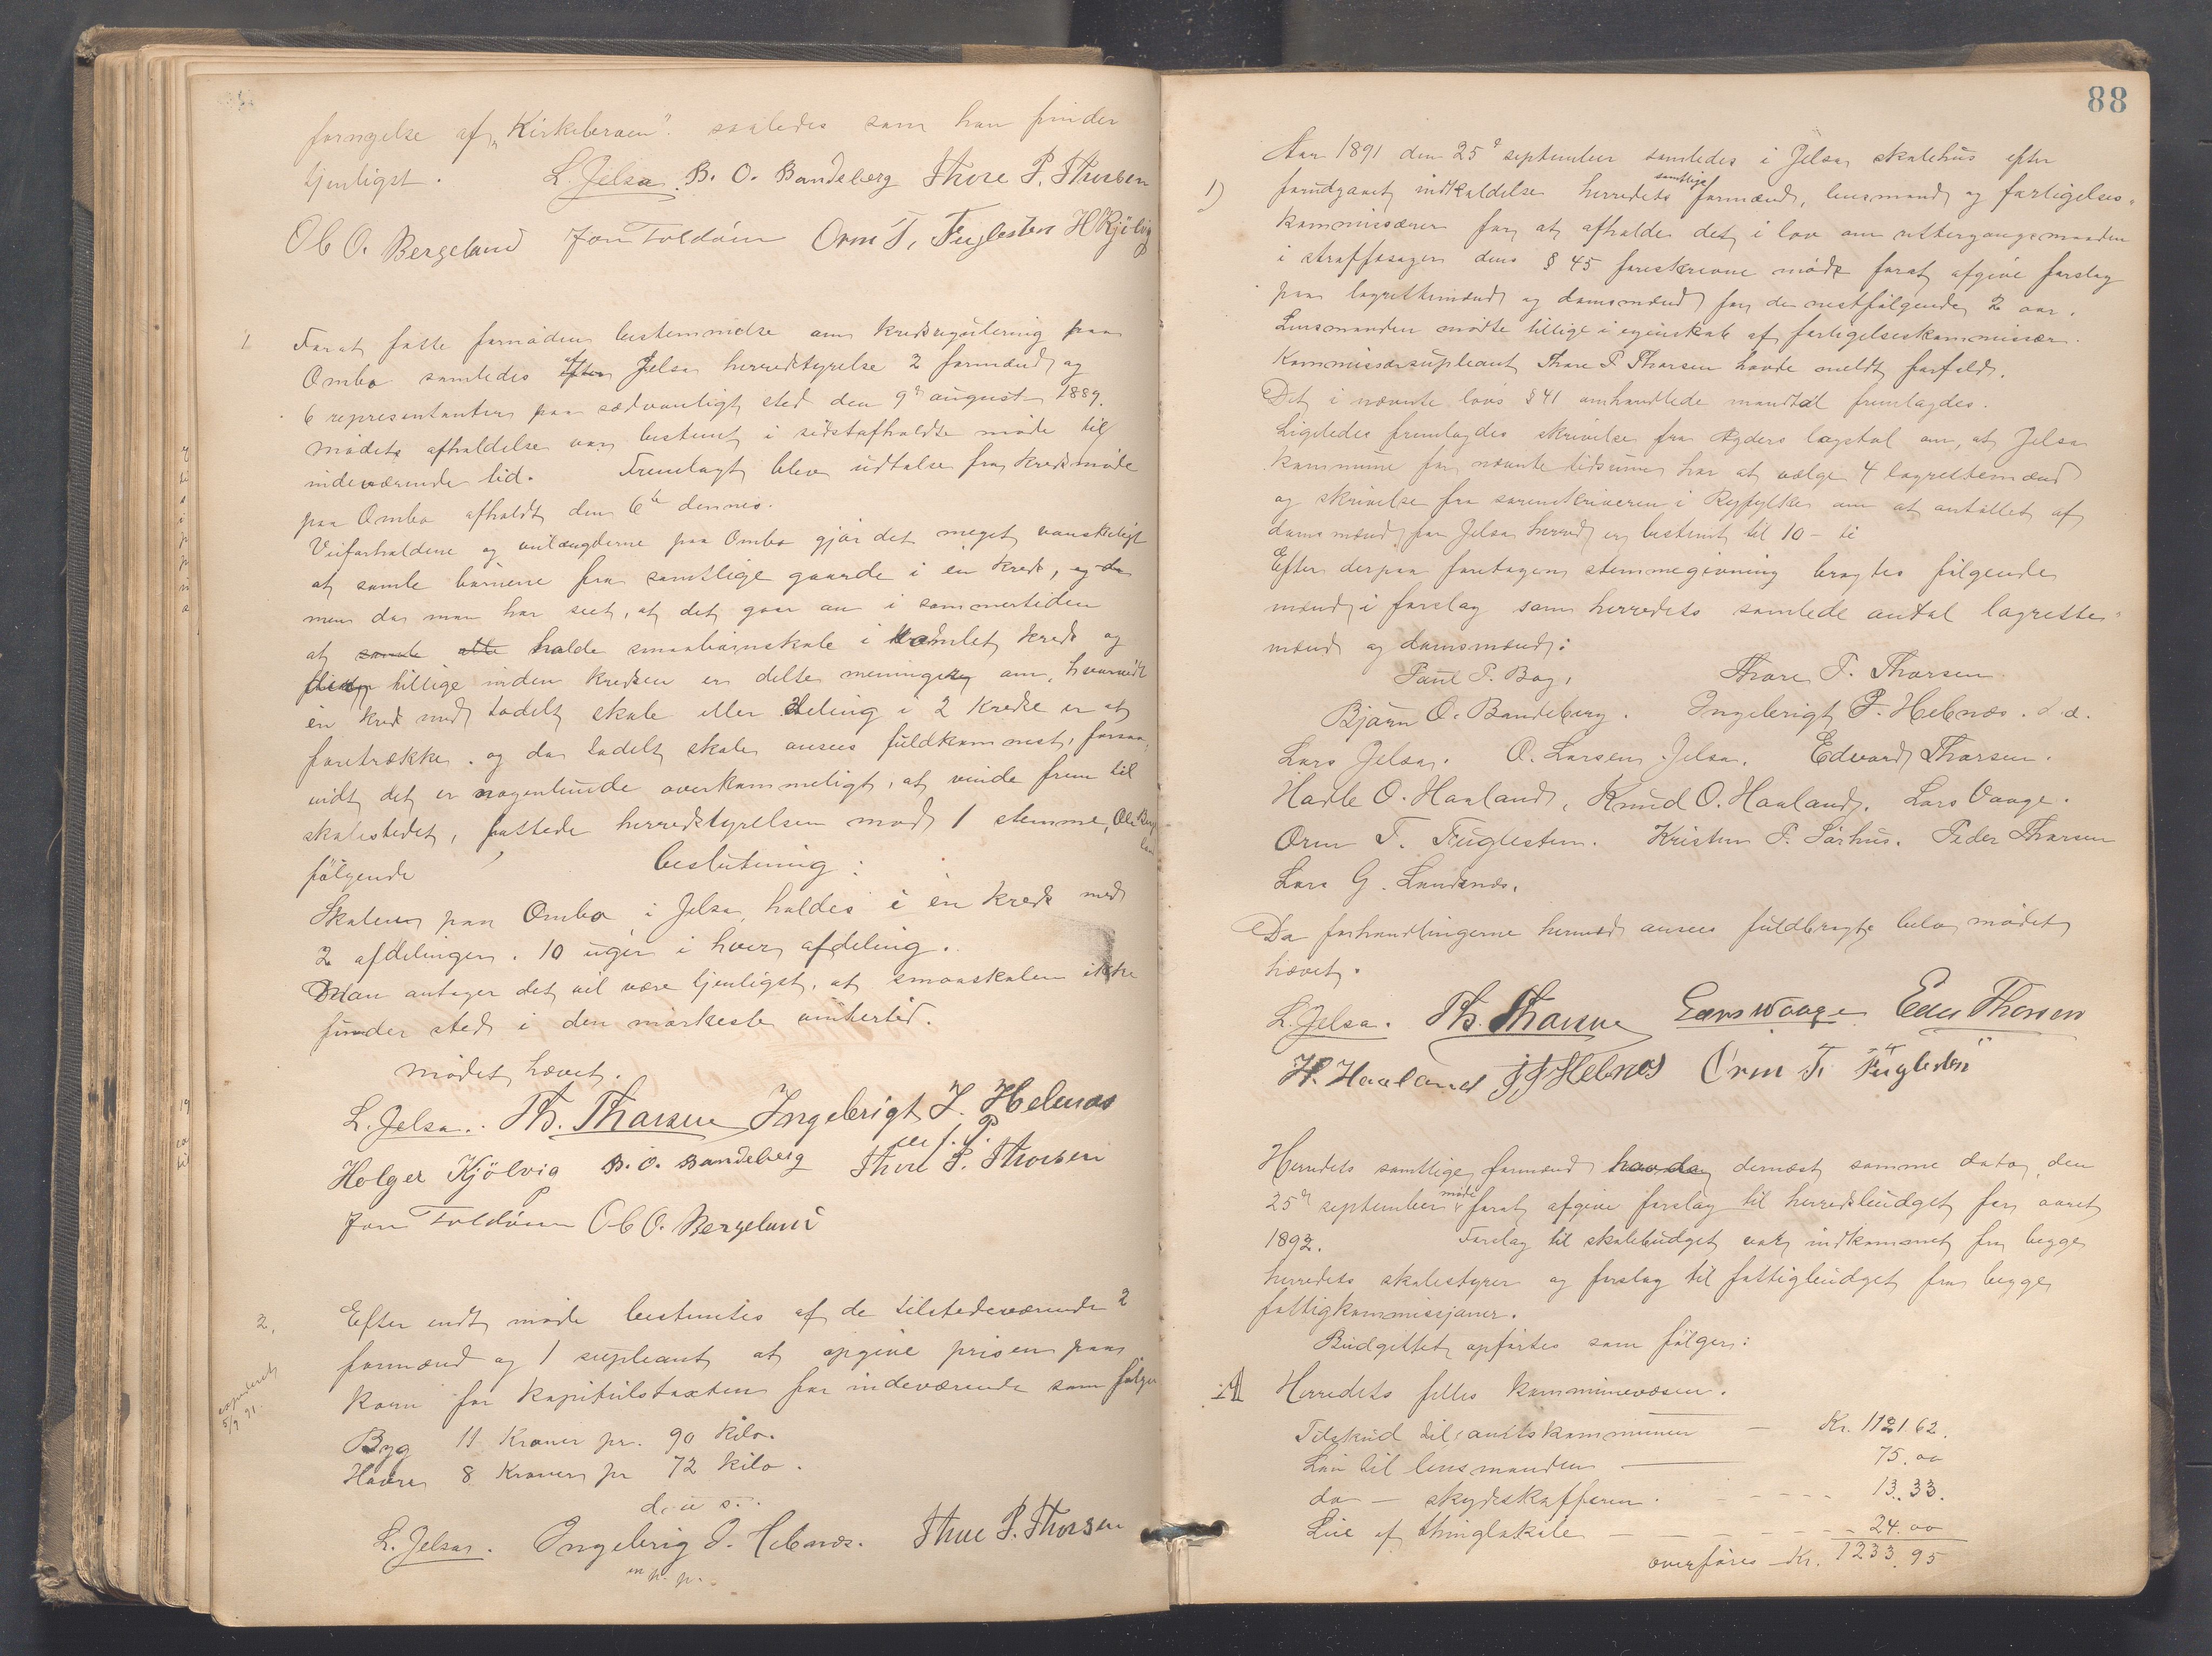 fornyelse af „Kirkebroen" saaledes som han finder
tjenligst.
L. Jelsa. B. O. Bandeberg Thore P. Thorsen
Ole O. Bergeland Jon Foldøen Orm T. Fuglesten H Kjølvig
1
Forat fatte fornøden bestemmelse om kredsregulering paa
Ombo samledes af Jelsa herredstyrelse 2 formænd og
6 repræsentanter paa sædvanligt sted den 9de august 1889.
Mødets afholdelse var bestemt i sidstafholdte møde til
indeværende tid. Fremlagt blev udtalelse fra kredsmøde
paa Ombo afholdt den 6te dennes.
Veiforholdene og veilængderne paa Ombo gjør det meget vanskeligt
at samle børnene fra samtlige gaarde i en kreds, og da
men da man har seet, at det gaar an i sommertiden
at samle alle holde smaabørnskole i samlet kreds og
tillige inden kredsen er delte meninger om, hvorvidt
èn kreds med todelt skole eller deling i 2 kredse er at
foretrække og da todelt skole ansees fuldkomnest, forsaa
vidt det er nogenlunde overkommeligt, at vinde frem til
skolestedet, fattede herredstyrelsen mod 1 stemme, Ole Bergeland
følgende beslutning:
Skolen paa Ombo i Jelsa holdes i èn kreds med
2 afdelinger. 10 uger i hver afdeling.
Man antager det vil være tjenligst, at smaaskolen ikke
finder sted i den mørkeste vintertid.
Mødet hævet.
L. Jelsa. Th. Tharsen Ingebrigt J. Helenæs
m. p. P.
Holger Kjölvig B. O. Bandeberg Thore P. Thorsen
Jon Foldøen Ole O. Bergeland
2.
Efter endt møde bestemtes af de tilstedeværende 2
formænd og 1 supleant at opgive prisen paa
korn for kapitulstaxten for indeværende som følger
5/9 91.
Byg 11 Kroner pr. 90 kilo.
Havre 8 Kroner pr 72 kilo.
d. u. s.
L. Jelsa. Ingebrig J. Hebnæs. Thore P. Thorsen
m. p. p.
88
1)
Aar 1891 den 25de september samledes i Jelsa skolehus efter
forudgaaet indkaldelse herredets samtlige formænd, lensmand og forligelses-
kommissærer for at afholde det i lov om rettergangsmaaden
i straffesager dens § 45 foreskrevne møde forat afgive forslag
paa lagrettemænd og domsmænd for de nestfølgende 2 aar.
Lensmanden mødte tillige i egenskab af forligelseskommissær.
Kommissærsupleant Thore P Thorsen havde meldt forfald.
Det i nævnte lovs § 41 omhandlede mandtal fremlagdes.
Ligeledes fremlagdes skrivelse fra Agders lagstol om, at Jelsa
kommune for nævnte tidsrum har at vælge 4 lagrettemænd
og skrivelse fra sorenskriveren i Ryfylke om at antallet af
domsmænd for Jelsa herred er bestemt til 10 - ti
Efter derpaa foretagen stemmegivning bragtes følgende
mænd i forslag som herredets samlede antal lagrette-
mænd og domsmænd:
Paul P. Bog, Thore T. Thorsen
Bjørn O. Bandeberg. Ingebrigt P. Hebnæs.
Lars Jelsa. O. Larsen Jelsa. Edvard Thorsen.
Hadle O. Haaland. Knud O. Haaland. Lars Vaage.
Orm T. Fuglesten. Kristen P. Sørhus. Peder Thorsen
Lars G. Landsnes.
Da forhandlingerne hermed ansees fuldbragte blev mødet
hævet.
L. Jelsa. Th. Tharsen Lars Waage Edv Thorsen
H. Haaland J J Hebnes Orm T. Fuglesten
Herredets samtlige formænd havde dernæst samme dato, den
25de september møde forat afgive forslag til herredsbudget for aaret
1892. Forslag til skolebudget var indkommet fra begge
herredets skolestyrer og forslag til fattigbudget fra begge
fattigkommissjoner.
Budgettet opførtes som følger:
A Herredets felles kommunevæsen.
Tilskud til amtskommunen — Kr. 1121.62.
Løn til lensmanden — 75.00
do — skydsskafferen. - - - - 13.33.
Leie af thinglokale - - - - - 24.00
overføres Kr. 1233.95